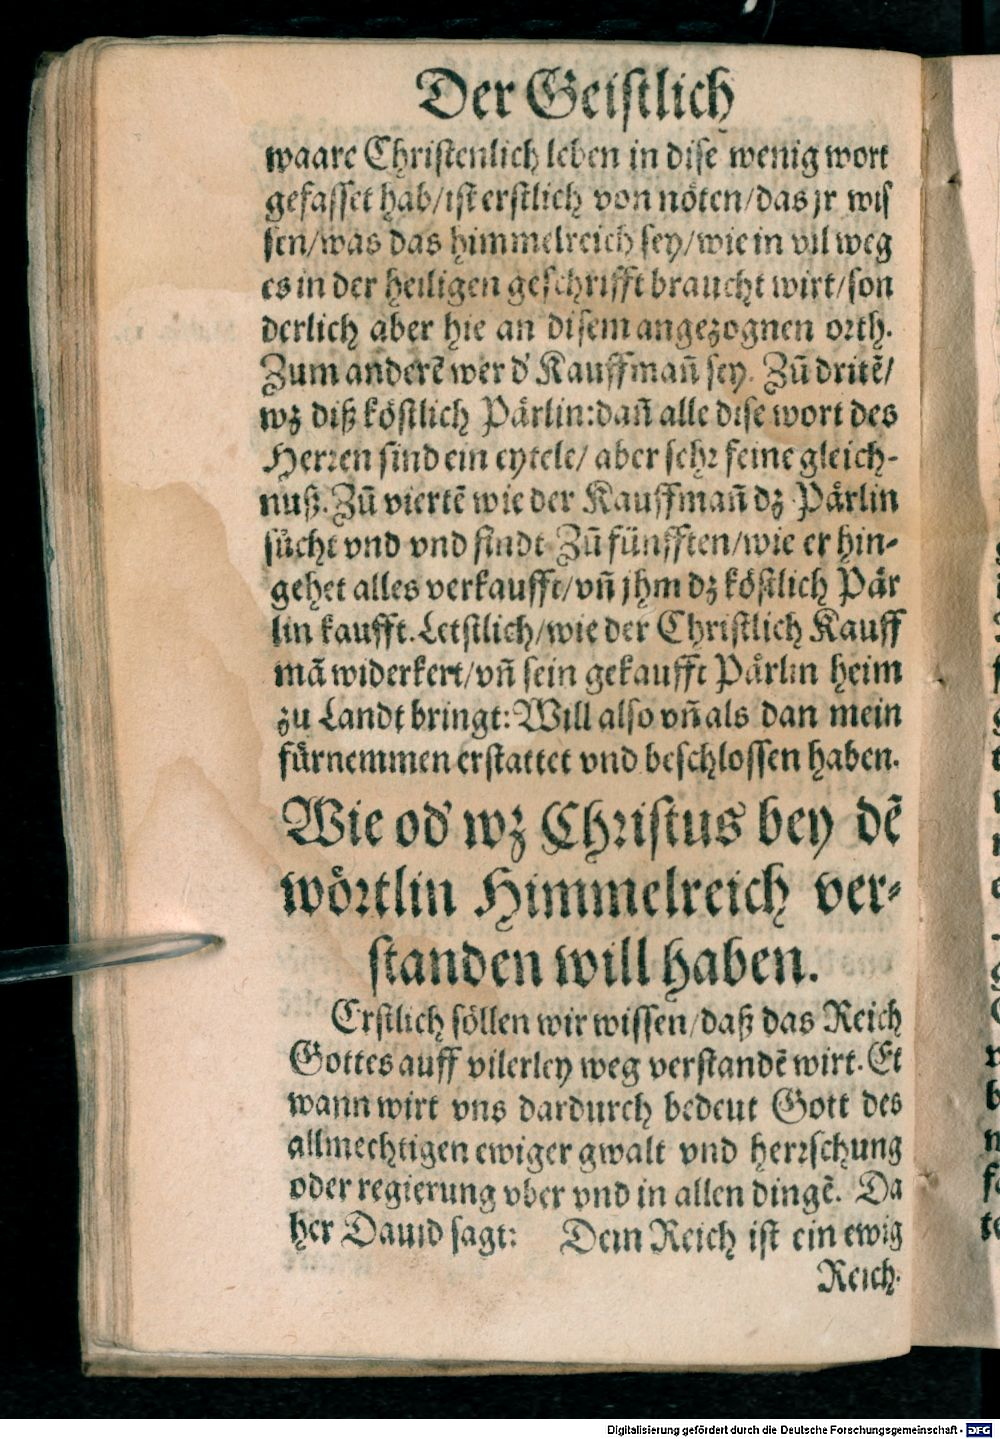 Der Geistlich
waare Christenlich leben in dise wenig wort
gefasset hab/ist erstlich von nöten/das jr wis
sen/was das himmelreich sey/wie in vil weg
es in der heiligen geschrifft braucht wirt/son
derlich aber hie an disem angezognen orth.
Zum anderẽ wer d' Kauffmañ sey. Zũ dritẽ/
wz diß köstlich Pärlin: dañ alle dise wort des
Herren sind ein eytele/ aber sehr feine gleich-
nuß. Zũ viertẽ wie der Kauffmañ dz Pärlin
sůcht vnd vnd findt. Zũ fünfften/wie er hin-
gehet alles verkaufft/vñ jhm dz köstlich Pär
lin kaufft. Letstlich/wie der Christlich Kauff
mã widerkert/vñ sein gekaufft Pärlin heim
zu Landt bringt: Will also vñ als dan mein
fürnemmen erstattet vnd beschlossen haben.
Wie od' wz Christus bey dẽ
wörtlin Himmelreich ver-
standen will haben.
Erstlich söllen wir wissen/daß das Reich
Gottes auff vilerley weg verstandẽ wirt. Et
wann wirt vns dardurch bedeut Gott des
allmechtigen ewiger gwalt vnd herrschung
oder regierung vber vnd in allen dingẽ. Da
her Dauid sagt: Dein Reich ist ein ewig
Reich.
Digitalisierung gefördert durch die Deutsche Forschungsgemeinschaft - DFG